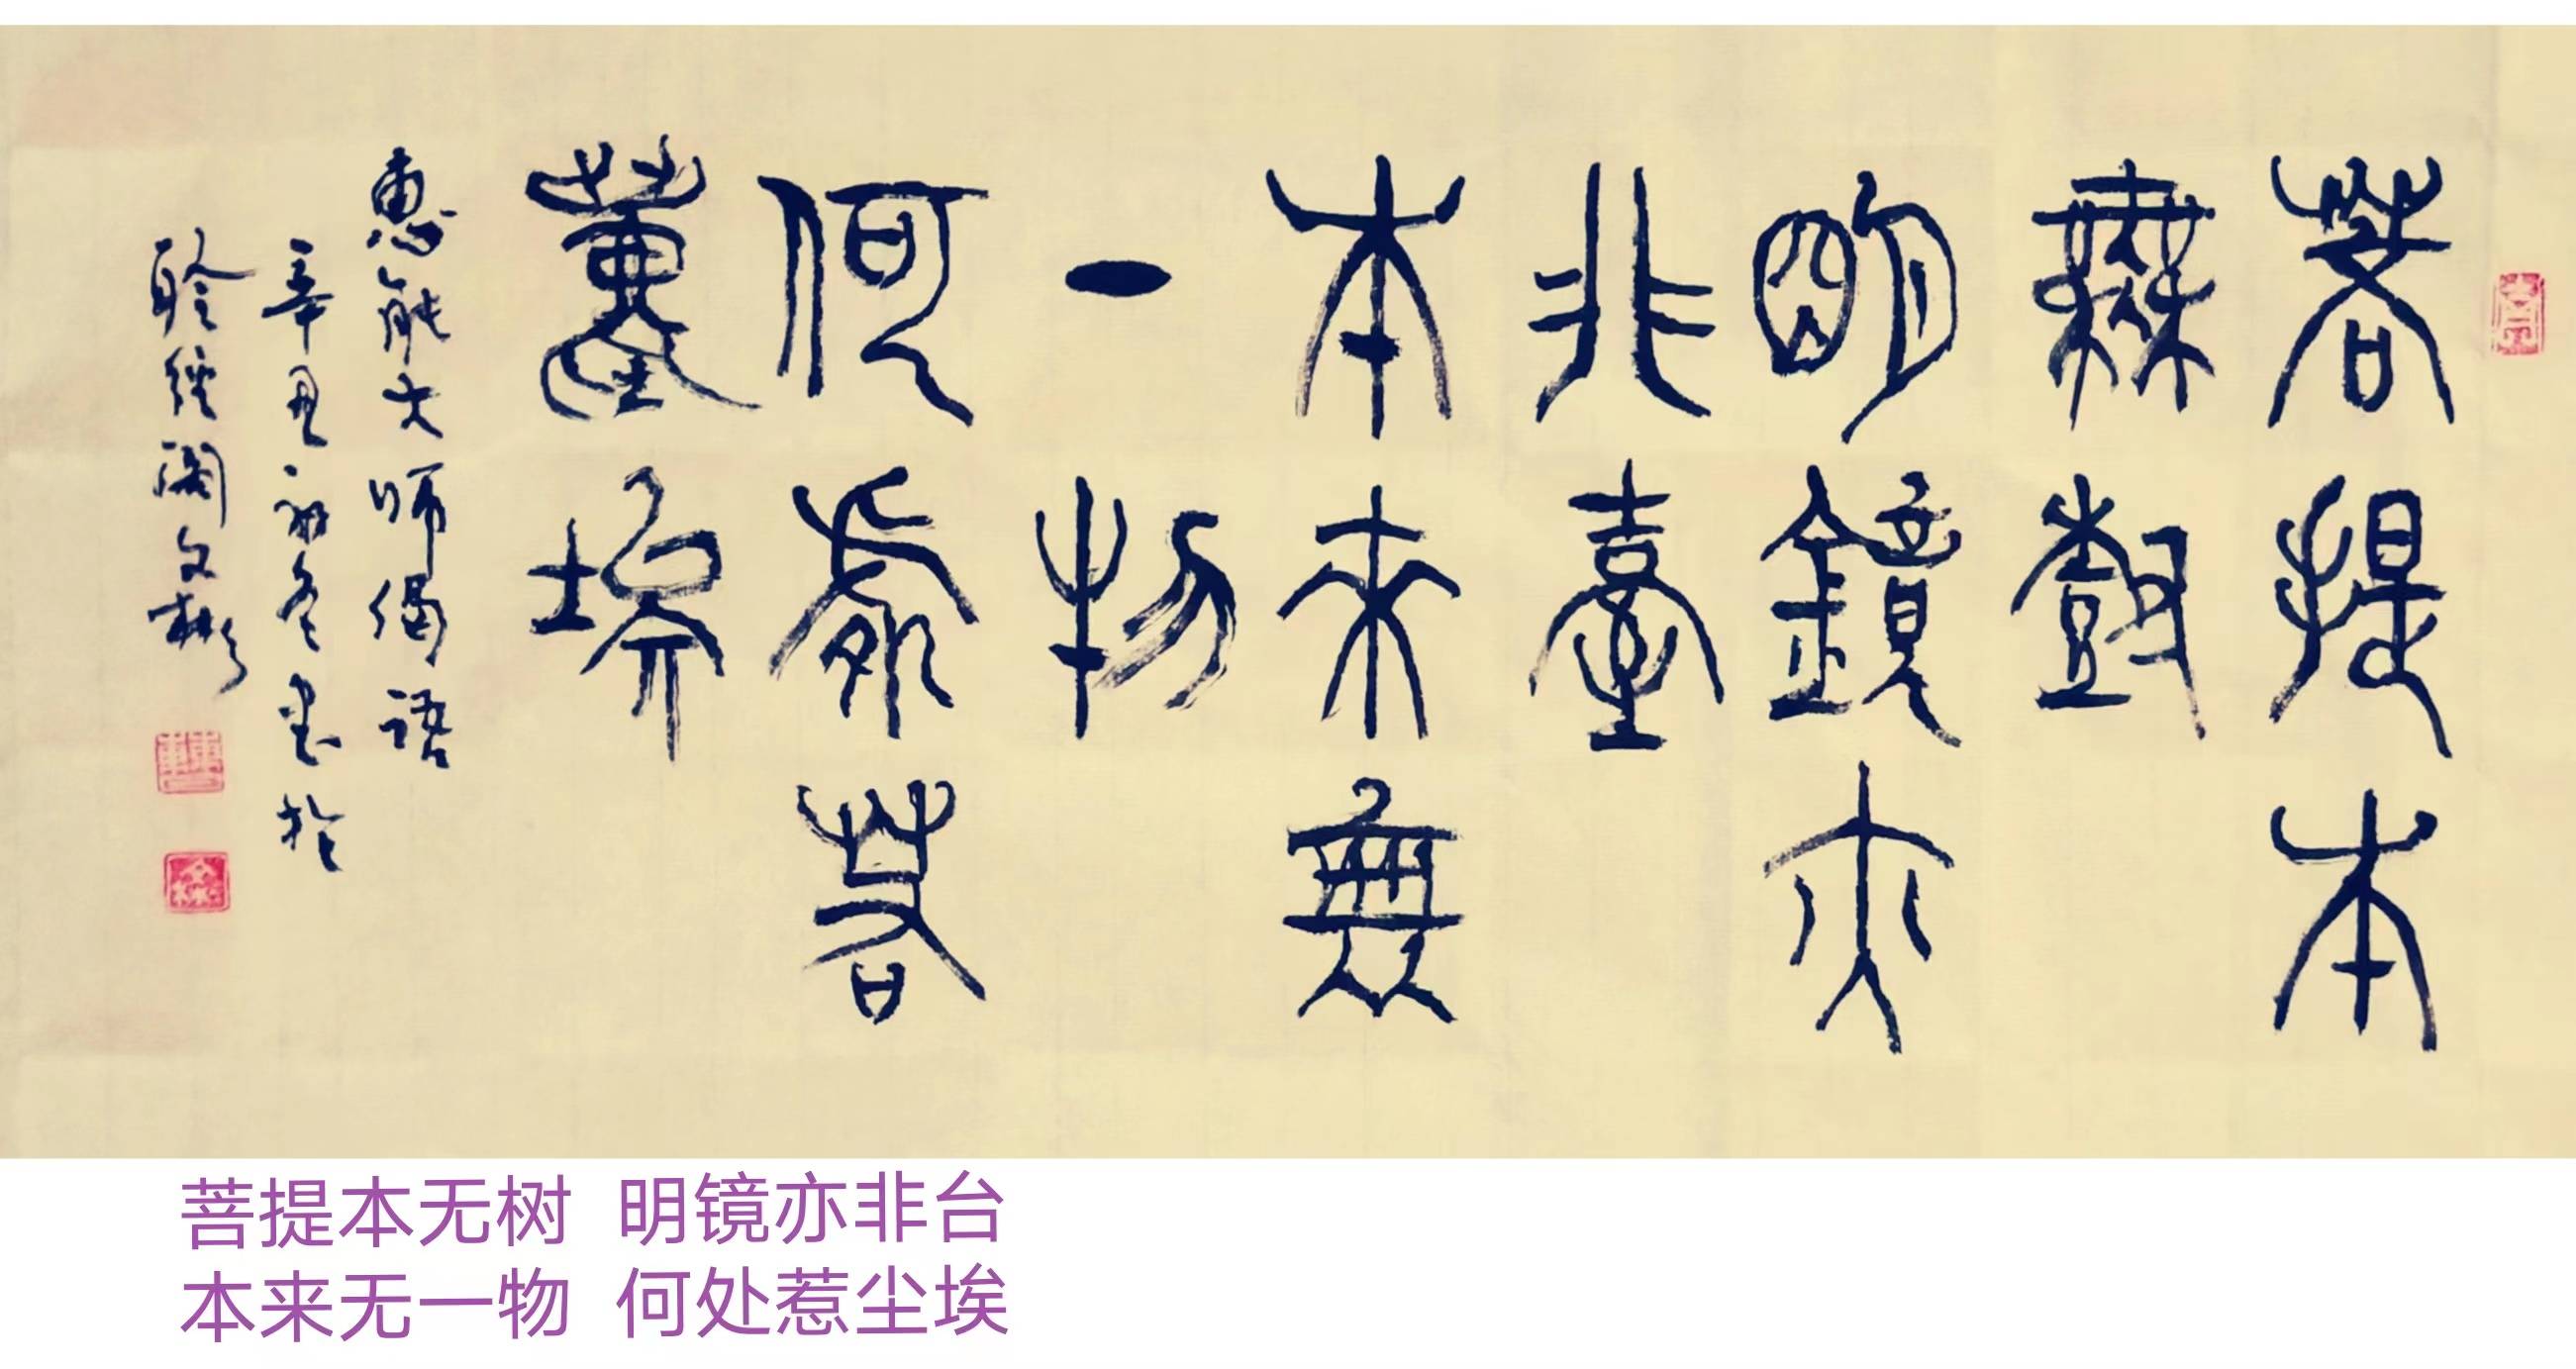 菩提本
無樹
明鏡亦
非臺
本来無
一物
何處若
塵埃
惠能大师偈语
辛丑初冬书於
聆经阁文彬
菩提本无树 明镜亦非台
本来无一物 何处惹尘埃